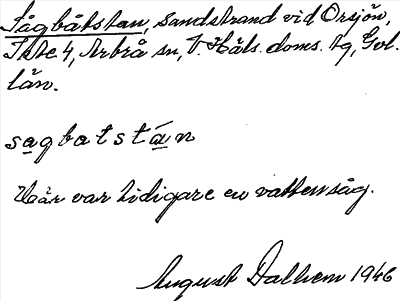 Sågbåtstan, sandstrand vid Orsjön,
Tste 4, Arbrå sn, V. Häls. doms. tg, Gvl.
län.
sagbatstán
Här var tidigare en vattensåg.
August Dalhem 1946